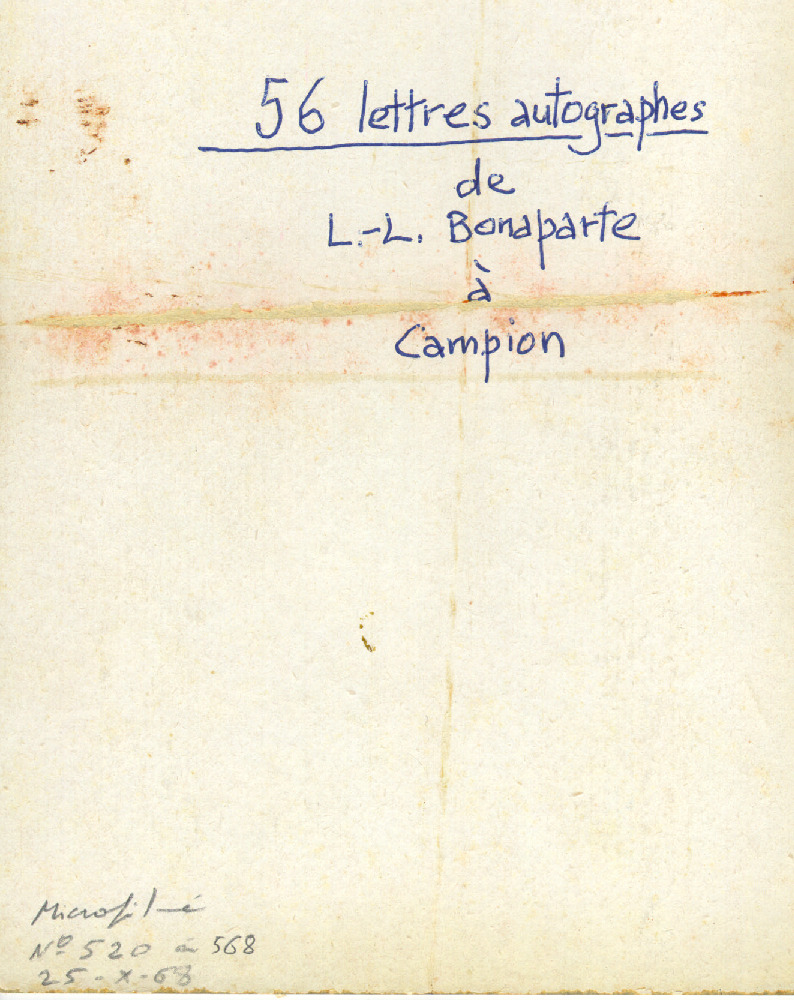 56 lettres autographes
de
L.-L. Bonaparte
à
Campion
Microfilmé
Nº 520 à 568
25-X-68